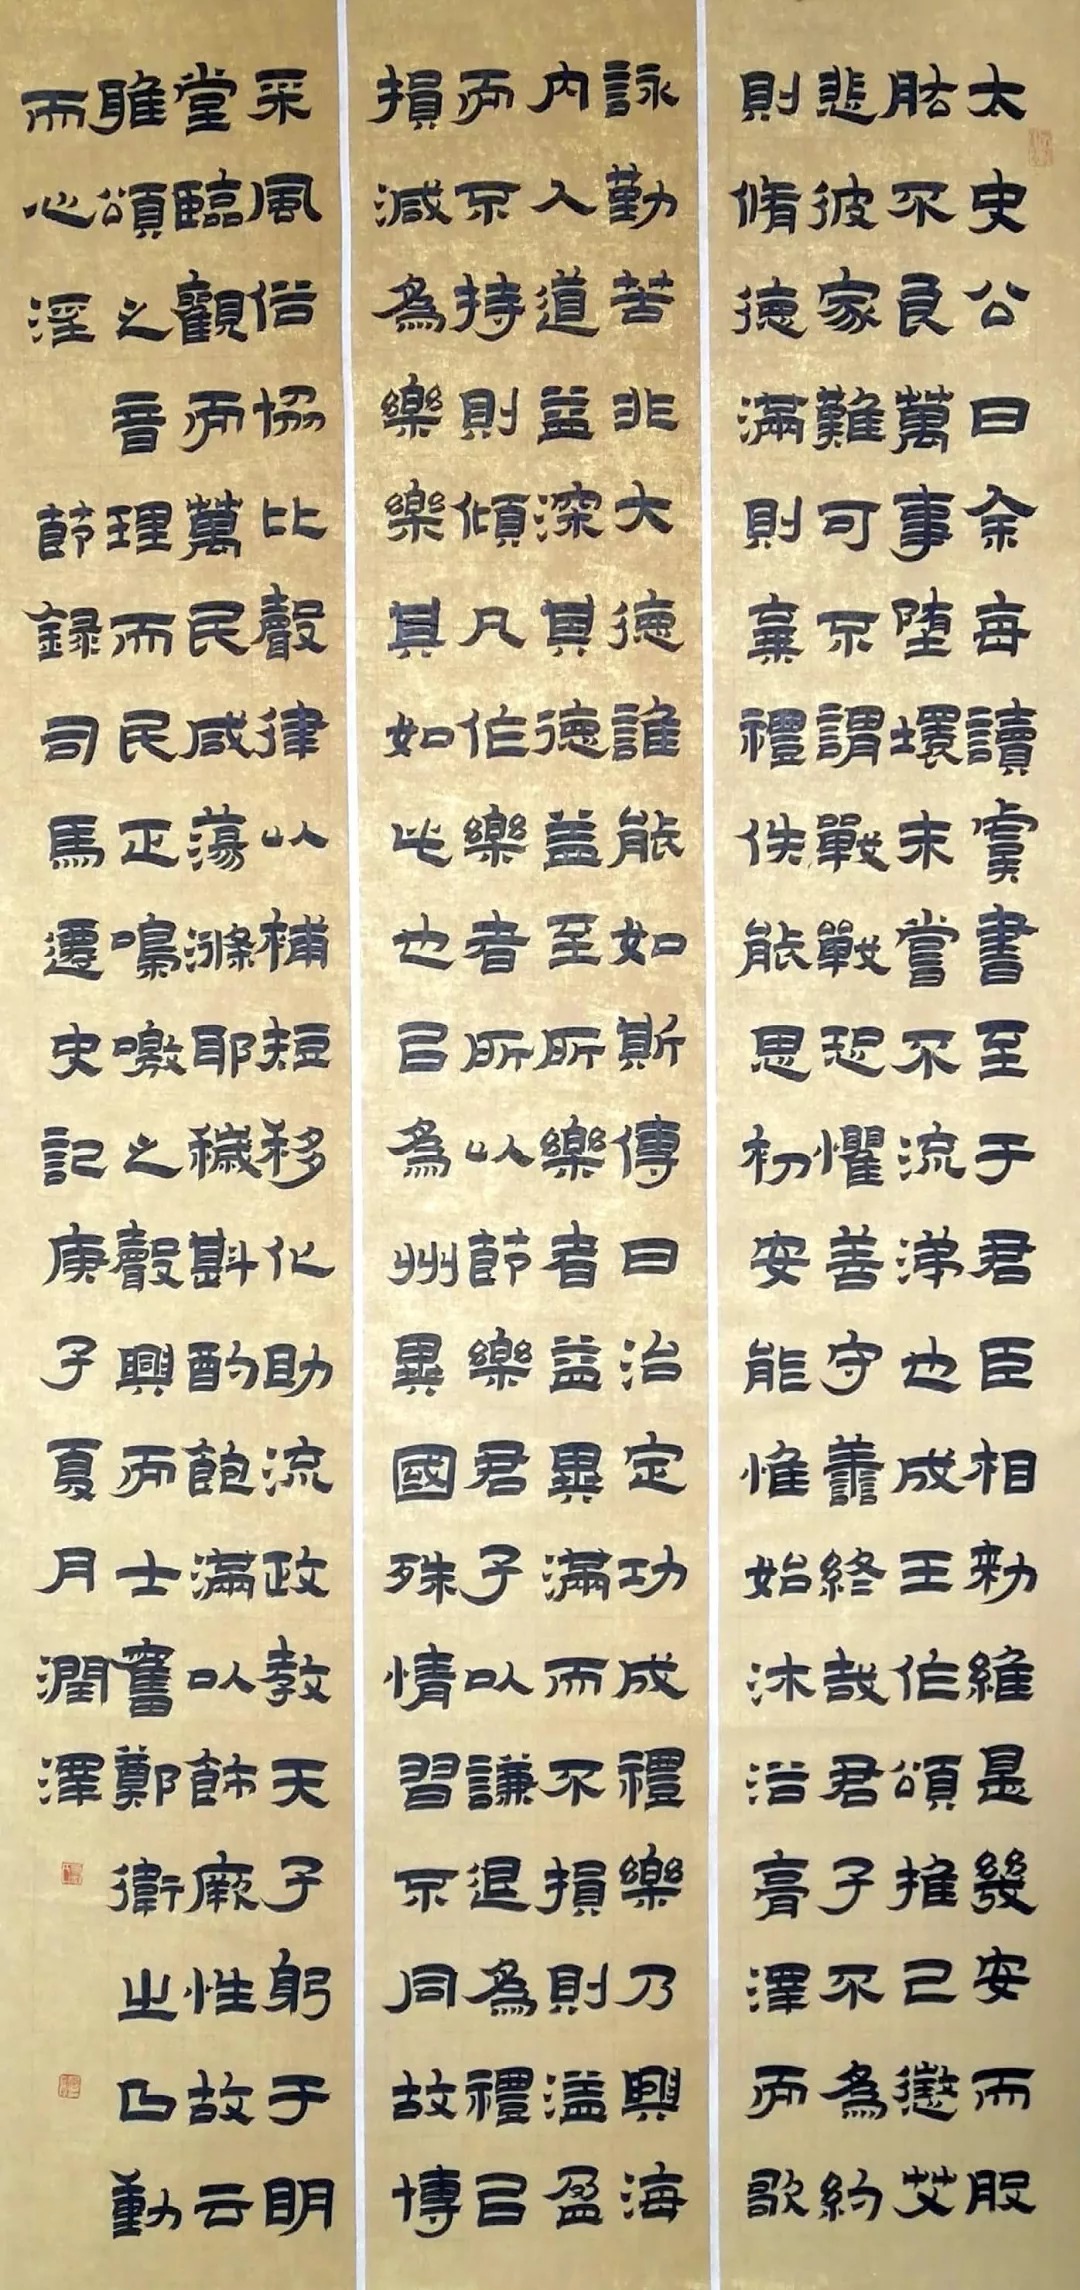 太史公曰余每讀虞書至于君臣相勑維是幾安而股
肱不良萬事墮壞未嘗不流涕也成王作頌推己懲艾
悲彼家難可不謂戰戰恐懼善守善終哉君子不為約
則脩德滿則棄禮佚能思初安能惟始沐浴膏澤而歌
詠勤苦非大德誰能如斯傳曰治定功成禮樂乃興海
內人道益深其德益至所樂者益異滿而不損則溢盈
而不持則傾凡作樂者所以節樂君子以謙退為禮以
損減為樂樂其如此也以為州異國殊情習不同故博
采風俗協比聲律以補短移化助流政教天子躬于明
堂臨觀而萬民咸蕩滌邪穢斟酌飽滿以飾厥性故云
雅頌之音理而民正鳴噭之聲興而士奮鄭衛之曲動
而心淫
節錄司馬遷史記庚子夏月潤澤